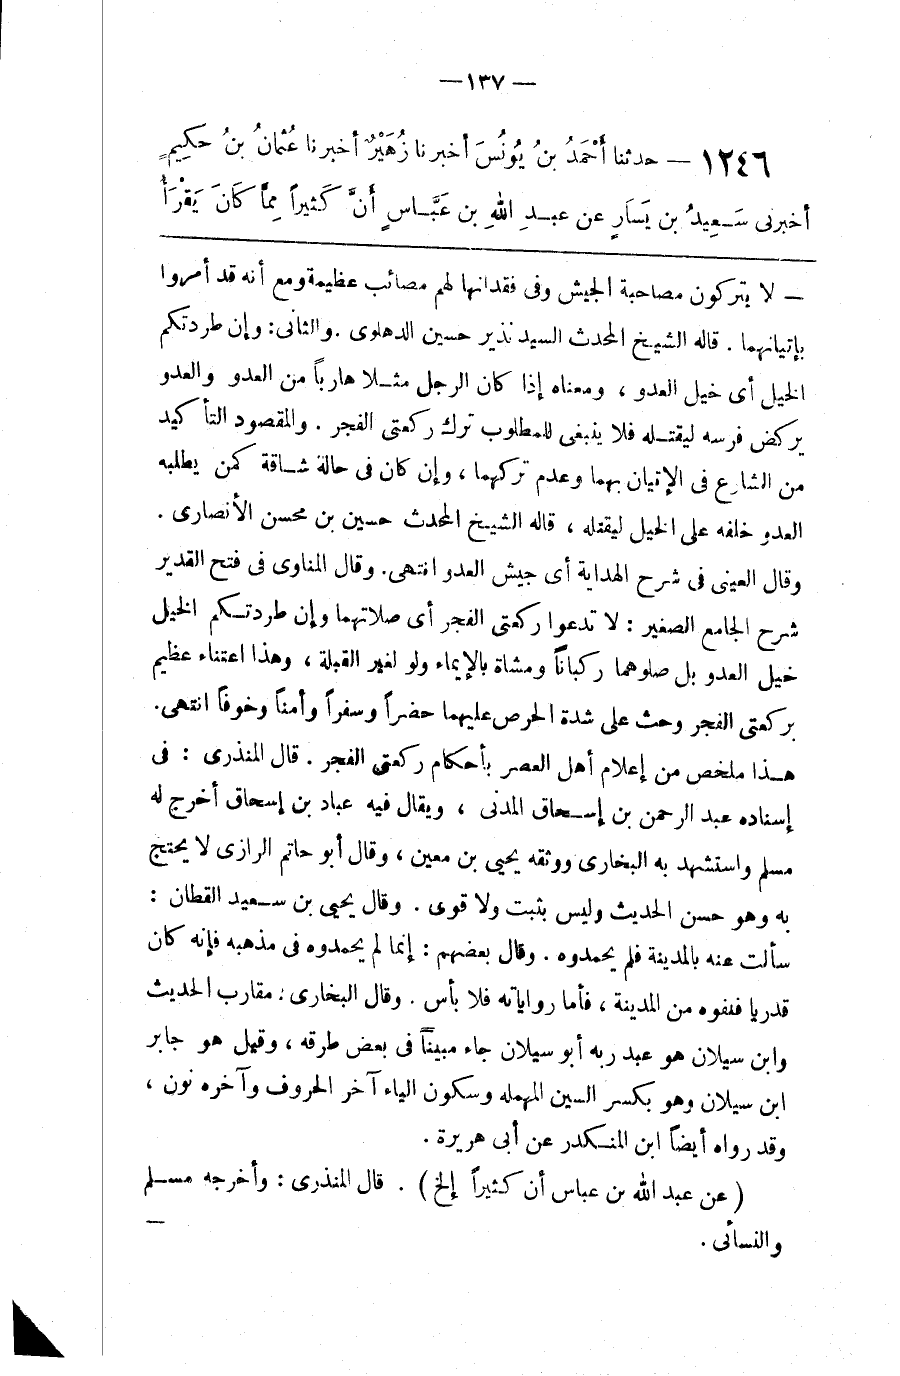 — ١٣٧ —
١٢٤٦ — حدثنا أَحْمَدُ بنُ يُونُسَ أخبرنا زُهَيْرٌ أخبرنا عُثْمانُ بنُ حَكِيمٍ
أخبرنى سَــعِيدُ بن يَسَارٍ عن عبــدِ اللهِ بن عَبَّــاسٍ أَنَّ كَثيراً مِمَّا كَانَ يَقْرَأُ
— لا يتركون مصاحبة الجيش وفى فقدانها لهم مصائب عظيمة ومع أنه قد أمروا
بإتيانهما . قاله الشيــخ المحدث السيد نذير حسين الدهلوى . والثانى : وإن طردتكم
الخيل أى خيل العدو ، ومعناه إذا كان الرجل مثــلا هارباً من العدو والعدو
يركض فرسه ليقتــله فلا ينبغى للمطلوب ترك ركعتى الفجر . والمقصود التأكيد
من الشارع فى الإتيان بهما وعدم تركهما ، وإن كان فى حالة شــاقة كمن يطلبه
العدو خلفه على الخيل ليقتله ، قاله الشيــخ المحدث حسين بن محسن الأنصارى .
وقال العينى فى شرح الهداية أى جيش العدو انتهى . وقال المناوى فى فتح القدير
شرح الجامع الصغير : لا تدعوا ركعتى الفجر أى صلاتهما وإن طردتــكم الخيل
خيل العدو بل صلوهما ركباناً ومشاة بالإيماء ولو لغير القبلة ، وهذا اعتناء عظيم
بركعتى الفجر وحث على شدة الحرص عليهما حضراً وسفراً وأمناً وخوفاً انتهى .
هــذا ملخص من إعلام أهل العصر بأحكام ركعتى الفجر . قال المنذرى : فى
إسناده عبد الرحمن بن إســحاق المدنى ، ويقال فيه عباد بن إسحاق أخرج له
مسلم واستشهد به البخارى ووثقه يحيى بن معين ، وقال أبو حاتم الرازى لا يحتج
به وهو حسن الحديث وليس بثبت ولا قوى . وقال يحيى بن ســعيد القطان :
سألت عنه بالمدينة فلم يحمدوه . وقال بعضهم : إنما لم يحمدوه فى مذهبه فإنه كان
قدريا فنفوه من المدينة ، فأما رواياته فلا بأس . وقال البخارى : مقارب الحديث
وابن سيلان هو عبد ربه أبو سيلان جاء مبيناً فى بعض طرقه ، وقيل هو جابر
ابن سيلان وهو بكسر السين المهملة وسكون الياء آخر الحروف وآخره نون ،
وقد رواه أيضاً ابن المنــكدر عن أبى هريرة .
( عن عبد الله بن عباس أن كثيراً إلخ ) . قال المنذرى : وأخرجه مســلم
والنسائى . —